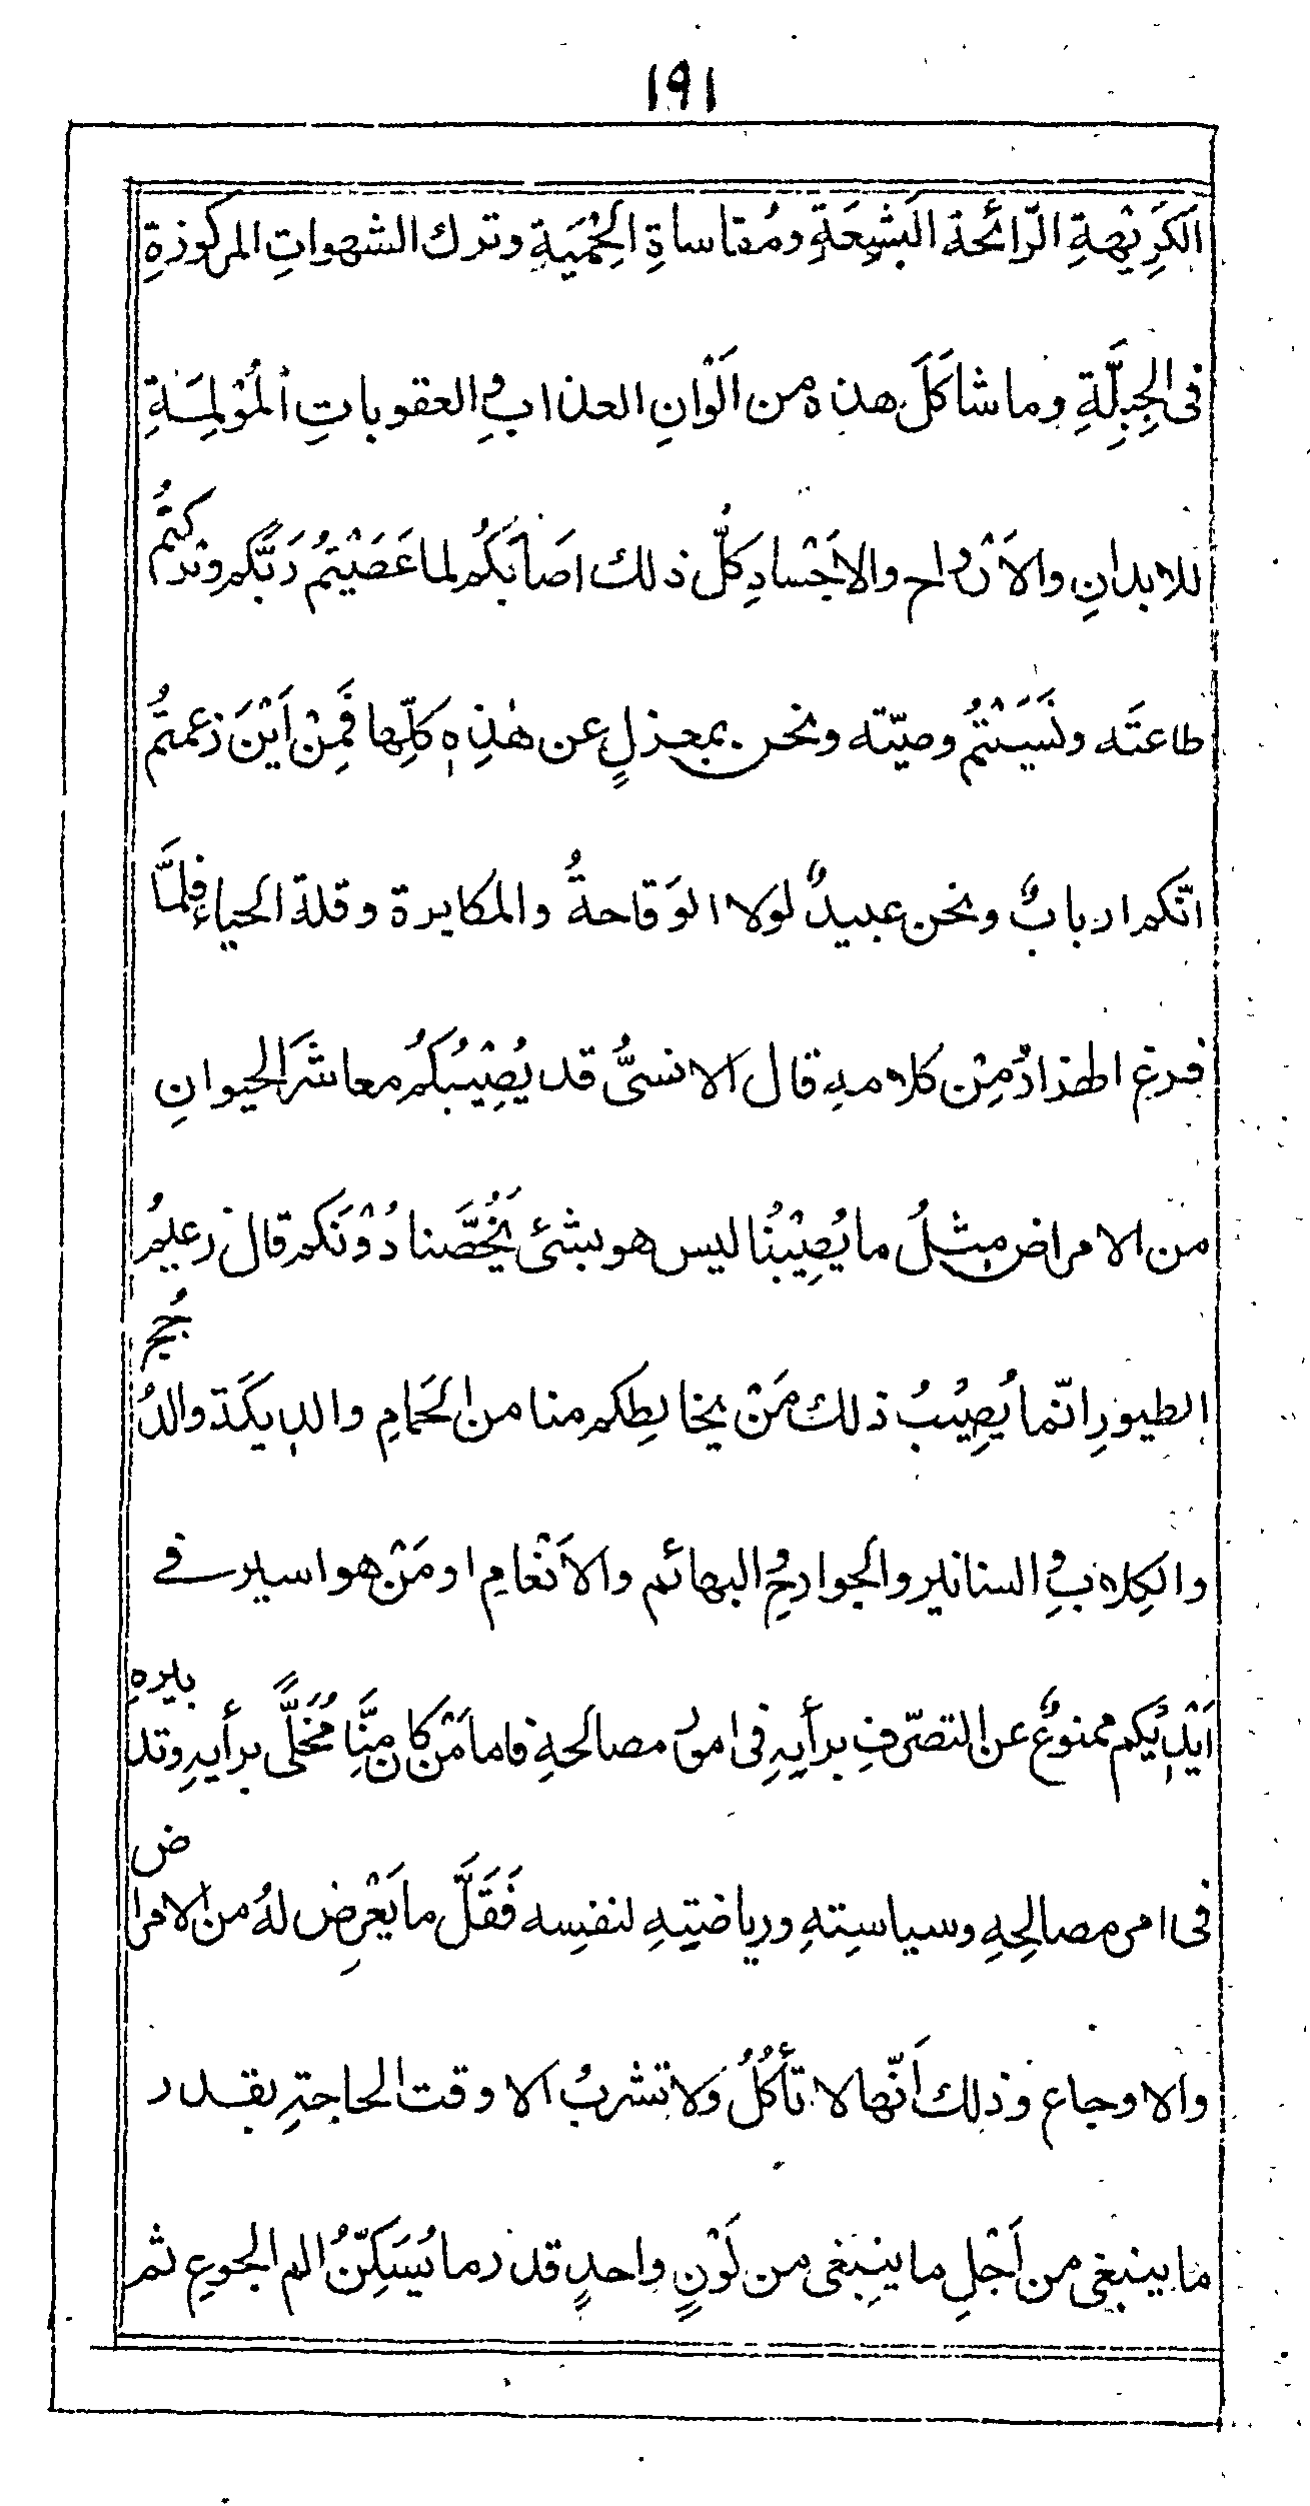 ١٩١
اَلكَرِيْهةِ الرّائحة البَشِعَةِ ومُقاساةِ الحِمْيَةِ وترك الشهواتِ المركوزةِ
فى الجِبِلَّةِ وما شاكَلَ هذه من اَلْوانِ العذابِ والعقوباتِ المُؤْلِمَةِ
للابدانِ والاَرْواح والاَجْسادِ كلُّ ذلك اصَابَكُم لما عَصَيْتمُ رَبَّكم وتركتمُ
طاعتَه ونَسَيْتمُ وصيّته ونحن بمعزلٍ عن هٰذِهٖ كلِّها فَمِنْ اَيْنَ زعمتمُ
انّكم اربابٌ ونحن عبيدٌ لولا الوَقاحةُ والمكابرة وقلة الحياء فلمَّا
فرغ الهزارُ مِنْ كلامهِ قال الانسىُّ قد يُصِيْبُكُم معاشرَ الحيوانِ
من الامراض مثلُ ما يُصِيْبُنُا ليس هو بشئ يَخُصَّنا دُوْنَكم قال زعيمُ
الطيورِ انّما يُصِيْبُ ذلك مَنْ يخالِطكم منا من الحَمامِ والديكَة والدُجج
والكِلابِ والسنانير والجوارحِ والبهائم والاَنْعامِ او مَنْ هو اسير فے
اَيْدِيْكم ممنوعٌ عن التصرّفِ برأيهِ فى امور مصالحهِ فاما مَنْ كان مِنَّا مُخَلًّى برأيهِ وتدبيرهِ
فى امر مصالِحِهِ وسياستِهِ ورياضتِهِ لنفسِه فَقَلَّ ما يَعْرِض لهُ من الامراض
والاوجاع وذلك اَنّها لا تأكُلُ ولا تشربُ الا وقت الحاجةِ بقدر
ما ينبغى من اَجْلِ ما ينبغى من لَوْنٍ واحدٍ قدر ما يُسَكِّنُ الم الجوعِ ثم